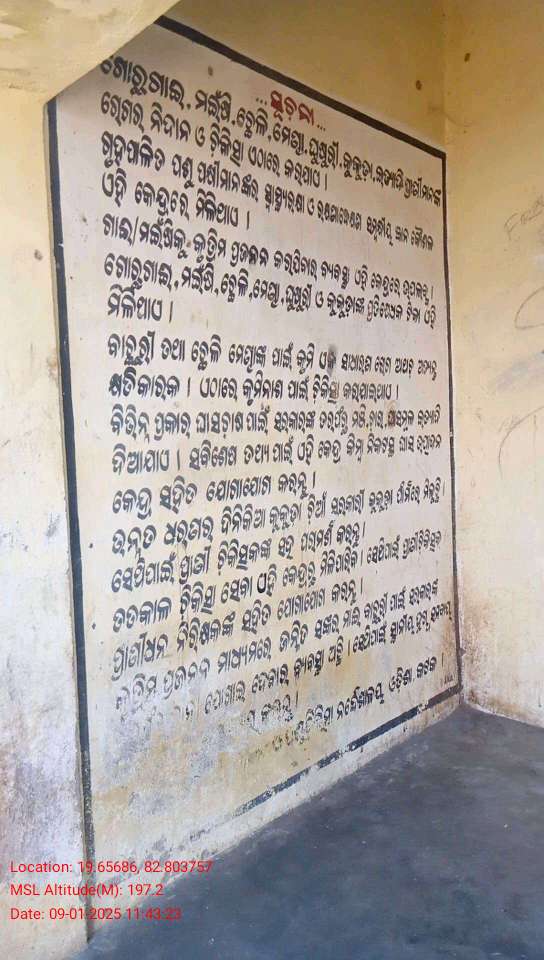 ... ସୂଚନା ...
ଗୋରୁଗାଈ, ମଇଁଷି, ଛେଳି, ମେଣ୍ଢା, ଘୁଷୁରୀ, କୁକୁଡ଼ା, ଇତ୍ୟାଦି ପ୍ରାଣୀମାନଙ୍କ
ରୋଗର ନିଦାନ ଓ ଚିକିତ୍ସା ଏଠାରେ କରାଯାଏ ।
ଗୃହପାଳିତ ପଶୁ ପକ୍ଷୀମାନଙ୍କର ସ୍ୱାସ୍ଥ୍ୟରକ୍ଷା ଓ ରକ୍ଷଣାବେକ୍ଷଣ ସମ୍ବନ୍ଧୀୟ ଜ୍ଞାନ କୌଶଳ
ଏହି କେନ୍ଦ୍ରରେ ମିଳିଥାଏ ।
ଗାଈ/ମଇଁଷିକୁ କୃତ୍ରିମ ପ୍ରଜନନ କରାଯିବାର ବ୍ୟବସ୍ଥା ଏହି କେନ୍ଦ୍ରରେ ଉପଲବ୍ଧ ।
ଗୋରୁଗାଈ, ମଇଁଷି, ଛେଳି, ମେଣ୍ଢା, ଘୁଷୁରୀ ଓ କୁକୁଡ଼ାଙ୍କ ପ୍ରତିଷେଧକ ଟିକା ଏହି
ମିଳିଥାଏ ।
ବାଛୁରୀ ତଥା ଛେଳି ମେଣ୍ଢାଙ୍କ ପାଇଁ କୃମି ଏକ ସାଧାରଣ ରୋଗ ଅଥଚ ଅତ୍ୟନ୍ତ
କ୍ଷତିକାରକ । ଏଠାରେ କୃମିନାଶ ପାଇଁ ଚିକିତ୍ସା କରାଯାଇଥାଏ ।
ବିଭିନ୍ନ ପ୍ରକାର ଘାସଚାଷ ପାଇଁ ସରକାରଙ୍କ ତରଫରୁ ମଞ୍ଜି, ଚାରା, ଘାସମୂଳ ଇତ୍ୟାଦି
ଦିଆଯାଏ । ସବିଶେଷ ତଥ୍ୟ ପାଇଁ ଏହି କେନ୍ଦ୍ର କିମ୍ବା ନିକଟସ୍ଥ ଘାସ ଉତ୍ପାଦନ
କେନ୍ଦ୍ର ସହିତ ଯୋଗାଯୋଗ କରନ୍ତୁ ।
ଉନ୍ନତ ଧରଣର ଦିନିକିଆ କୁକୁଡ଼ା ଚିଆଁ ସରକାରୀ କୁକୁଡ଼ା ଫାର୍ମରେ ମିଳୁଛି ।
ସେଥିପାଇଁ ପ୍ରାଣୀ ଚିକିତ୍ସକଙ୍କ ସହ ପରାମର୍ଶ କରନ୍ତୁ ।
ତତକାଳ ଚିକିତ୍ସା ସେବା ଏହି କେନ୍ଦ୍ରରୁ ମିଳିପାରିବ । ସେଥିପାଇଁ ପ୍ରାଣୀଚିକିତ୍ସକ
ପ୍ରାଣୀଧନ ନିରୀକ୍ଷକଙ୍କ ସହିତ ଯୋଗାଯୋଗ କରନ୍ତୁ ।
କୃତ୍ରିମ ପ୍ରଜନନ ମାଧ୍ୟମରେ ଜନ୍ମିତ ସଙ୍କର ମାଈ ବାଛୁରୀ ପାଇଁ ସରକାରଙ୍କ
ଯୋଗାଇ ଦେବାର ବ୍ୟବସ୍ଥା ଅଛି । ସେଥିପାଇଁ ସ୍ଥାନୀୟ
କରନ୍ତୁ ।
ନିର୍ଦ୍ଦେଶାଳୟ, ଓଡ଼ିଶା, କଟକ ।
Location: 19.65686, 82.803757
MSL Altitude(M): 197.2
Date: 09-01-2025 11:43:23